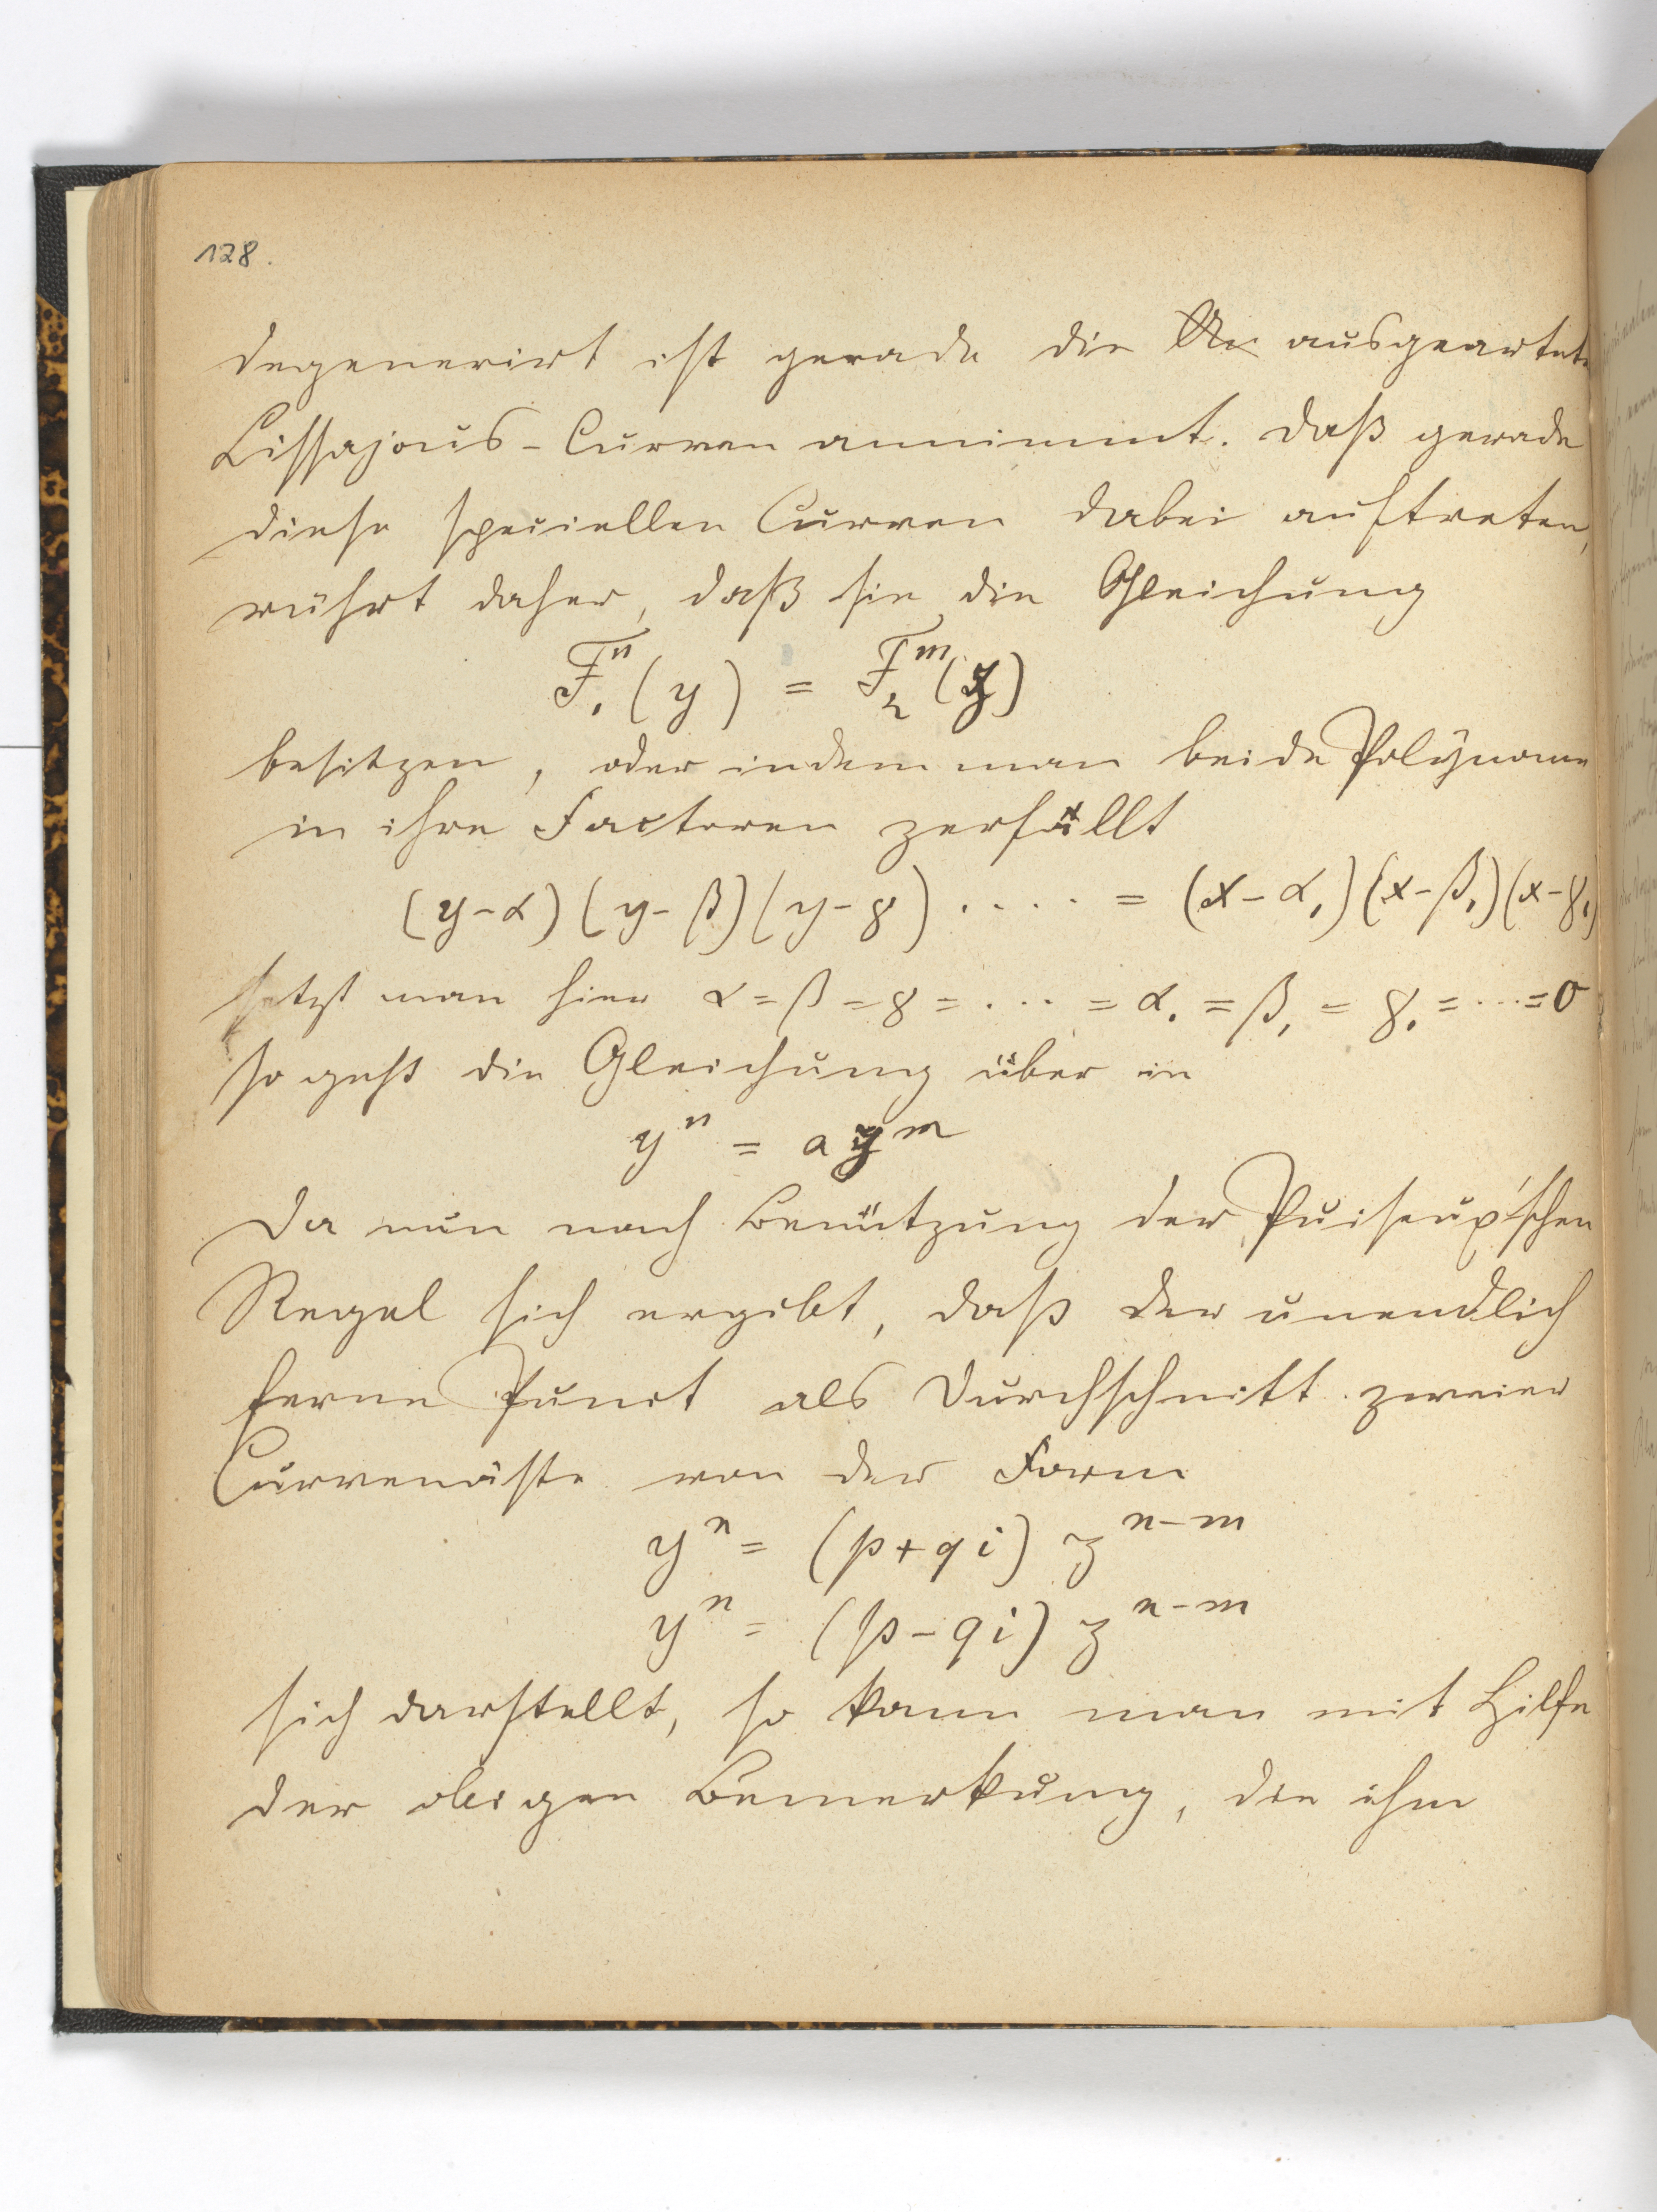 128.
degenerirt ist gerade die ausgeartete
Lissajous-Curven annimmt. Daß gerade
diese speciellen Curven dabei auftreten,
rührt daher, daß sie die Gleichung
F₁ⁿ(y) = F₂ᵐ(x)
besitzen, oder indem man beide Polynome
in ihre Factoren zerfällt
(y-α)(y-β)(y-γ)..... = (x-α₁)(x-β₁)(x-γ₁)
setzt man hier α=β=γ=....=α₁=β₁=γ₁=...=0
so geht die Gleichung über in
yⁿ = a xᵐ
Da nun nach Benützung der Puiseux'schen
Regel sich ergibt, daß der unendlich
ferne Punct als Durchschnitt zweier
Curvenäste von der Form
yⁿ = (p+qi) zⁿ⁻ᵐ
yⁿ = (p-qi) zⁿ⁻ᵐ
sich darstellt, so kann man mit Hilfe
der obigen Bemerkung, die ihm